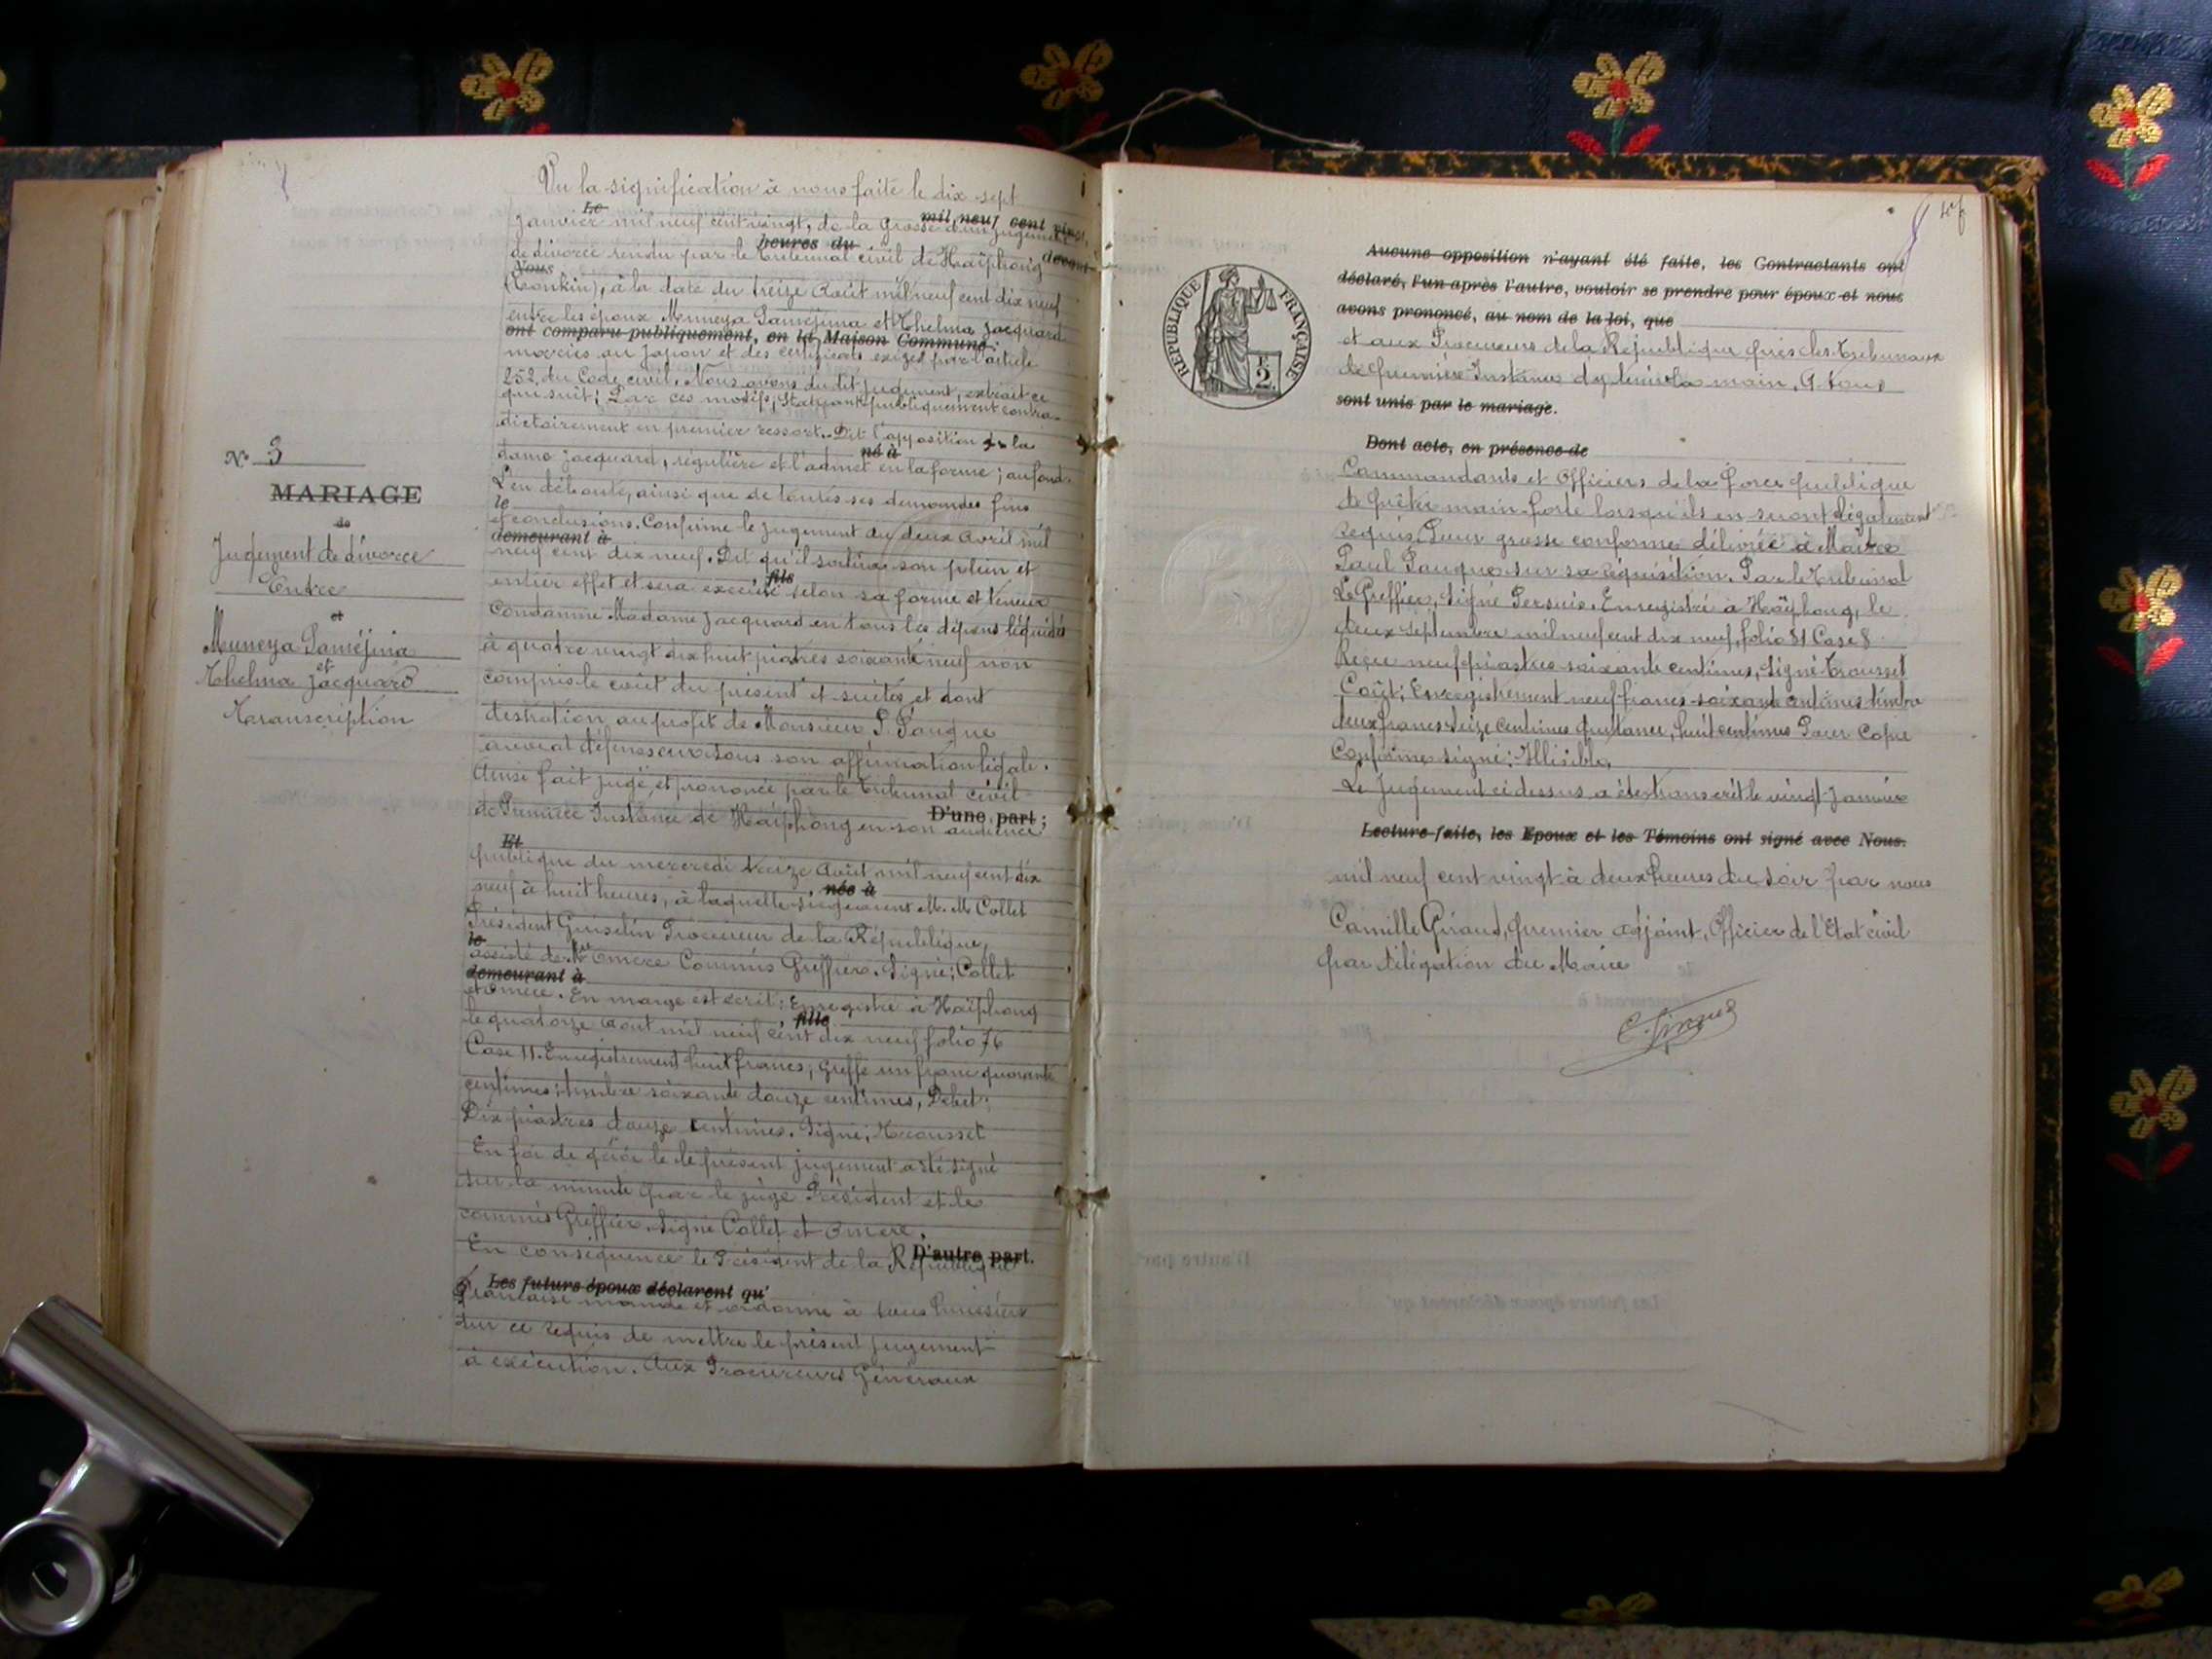 Vu la signification à nous faite le dix sept
Le mil neuf cent vingt,
Janvier mil neuf cent vingt, de la Grosse d'un jugement
heures du devant
de divorce rendu par le Tribunal civil de Haïphong
Nous
(Tonkin), à la date du treize Août mil neuf cent dix neuf
entre les époux Muneya Saméjima et Thelma Jacquard
ont comparu publiquement, en la Maison Commune:
mariés au Japon et des certificats exigés par l'article
252 du Code civil. Nous avons du dit jugement, extrait ce
qui suit; Par ces motifs; Statuant publiquement contra-
dictoirement en premier ressort. Dit l'opposition de la
né à
dame Jacquard, régulière et l'admet en la forme; au fond
L'en déboute, ainsi que de toutes ses demandes fins
le
et conclusions. Confirme le jugement du deux Avril mil
demeurant à
neuf cent dix neuf. Dit qu'il sortira son plein et
, fils
entier effet et sera exécuté selon sa forme et teneur
Condamne Madame Jacquard en tous les dépens liquidés
à quatre vingt dix huit piastres soixante neuf non
compris le coût du présent et suites et dont
distration au profit de Monsieur P. Pauque
avocat défenseur sous son affirmation légale.
Ainsi fait jugé, et prononcé par le Tribunal civil
D'une part;
de Première Instance de Haïphong en son audience
Et
publique du mercredi treize Août mil neuf cent dix
, née à
neuf à huit heures, à laquelle siégeaient M. M Collet
Président Guiselin Procureur de la République,
le
assisté de Me Omere Commis Greffier. Signé; Collet
demeurant à
et Omere. En marge est écrit: Enregistré à Haïphong
, fille
le quatorze Août mil neuf cent dix neuf folio 76
Case 11. Enregistrement huit francs, greffe un franc quarante
centimes; timbre soixante douze centimes, Debet:
Dix piastres douze centimes. Signé; Trousset
En foi de quoi le le présent jugement a été signé
sur la minute par le juge Président et le
commis Greffier. Signé Collet et Omere.
D'autre part.
En conséquence le Président de la République
Les futurs époux déclarent qu'
Française mande et ordonne à tous huissiers
sur ce requis de mettre le présent jugement
à exécution. Aux Procureurs Généraux
N° 3
MARIAGE
de
Jugement de divorce
Entre
et
Muneya Saméjima
et
Thelma Jacquard
Transcription
RÉPUBLIQUE FRANÇAISE
2 F
Aucune opposition n'ayant été faite, les Contractants ont
déclaré, l'un après l'autre, vouloir se prendre pour époux et nous
avons prononcé, au nom de la loi, que
et aux Procureurs de la République près les Tribunaux
de première Instance d'y tenir la main, A tous
sont unis par le mariage.
Dont acte, en présence de
Commandants et Officiers de la force publique
de prêter main forte lorsqu'ils en seront légalement
requis. Pour grosse conforme délivrée à Maître
Paul Pauque sur sa réquisition. Par le Tribunal
Le Greffier, Signé Enregistré à Haïphong, le
deux Septembre mil neuf cent dix neuf, folio 81 Case 8
Reçu neuf piastres soixante centimes, Signé Trousset
Coût; Enregistrement neuf francs soixante centimes timbre
deux francs seize centimes quittance, huit centimes Pour Copie
Conforme signé: Illisible,
Le Jugement ci dessus a été transcrit le vingt Janvier
Lecture faite, les Epoux et les Témoins ont signé avec Nous.
mil neuf cent vingt à deux heures du soir par nous
Camille Giraud, premier adjoint, Officier de l'Etat civil
par délégation du Maire
C. Giraud